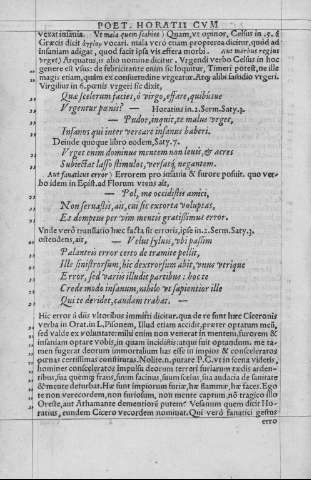 POET. HORATII CVM
vexat insania. Vt mala quem scabies) Quam, vt opinor, Celsus in .5. à
Græcis dicit vocari. mala verò etiam propterea dicitur, quòd ad
insaniam adigat, quod facit ipsa vis effera morbi. Aut morbus regius
vrget) Arquatus, is alio nomine dicitur. Vrgendi verbo Celsus in hoc
genere est vsus: de febricitante enim sic loquitur, Timeri potest, ne ille
magis etiam, quàm ex consuetudine vrgeatur. Atq; alibi sæpius vrgeri.
Virgilius in 6. pœnis vrgeri sic dixit,
Quæ scelerum facies, ô virgo, effare, quibúsue
Vrgentur pœnis? — Horatius in 2. Serm. Saty. 3.
— Pudor, inquit, te malus vrget,
Insanos qui inter vereare insanus haberi.
Deinde quoque libro eodem, Saty. 7.
Vrget enim dominus mentem non lenis, & acres
Subiectat lasso stimulos, versatq; negantem.
Aut fanaticus error) Errorem pro insania & furore posuit. quo verbo
idem in Epist. ad Florum vtens ait,
— Pol, me occidistis amici,
Non seruastis, ait, cui sic extorta voluptas,
Et demptus per vim mentis gratissimus error.
Vnde verò translatio hæc facta sit erroris, ipse in .2. Serm. Saty. 3.
ostendens, ait, — Velut syluis, vbi passim
Palanteis error certo de tramite pellit,
Ille sinistrorsum, hic dextrorsum abit, vnus vtrique
Error, sed variis illudit partibus: hoc te
Crede modo insanum, nihilo vt sapientior ille
Qui te deridet, caudam trahat. —
Hic error à diis vltoribus immitti dicitur. qua de re sunt hæc Ciceronis
verba in Orat. in L. Pisonem, Illud etiam accidit, præter optatum meũ,
sed valde ex voluntate: mihi enim non venerat in mentem, furorem &
insaniam optare vobis, in quam incidistis: atqui fuit optandum. me tamen
fugerat deorum immortalium has esse in impios & consceleratos
pœnas certissimas constitutas. Nolite. n. putare P. C. vt in scena videtis,
homines consceleratos impulsu deorum terreri furiarum tædis ardentibus,
sua quenq; fraus, suum facinus, suum scelus, sua audacia de sanitate
& mente deturbat. Hæ sunt impiorum furiæ, hæ flammæ, hæ faces. Ego
te non verecordem, non furiosum, non mente captum, nõ tragico illo
Oreste, aut Athamante dementiorẽ putem? Vesanum quem dicit Horatius,
eundem Cicero vecordem nominat. Qui verò fanatici gestus
erro